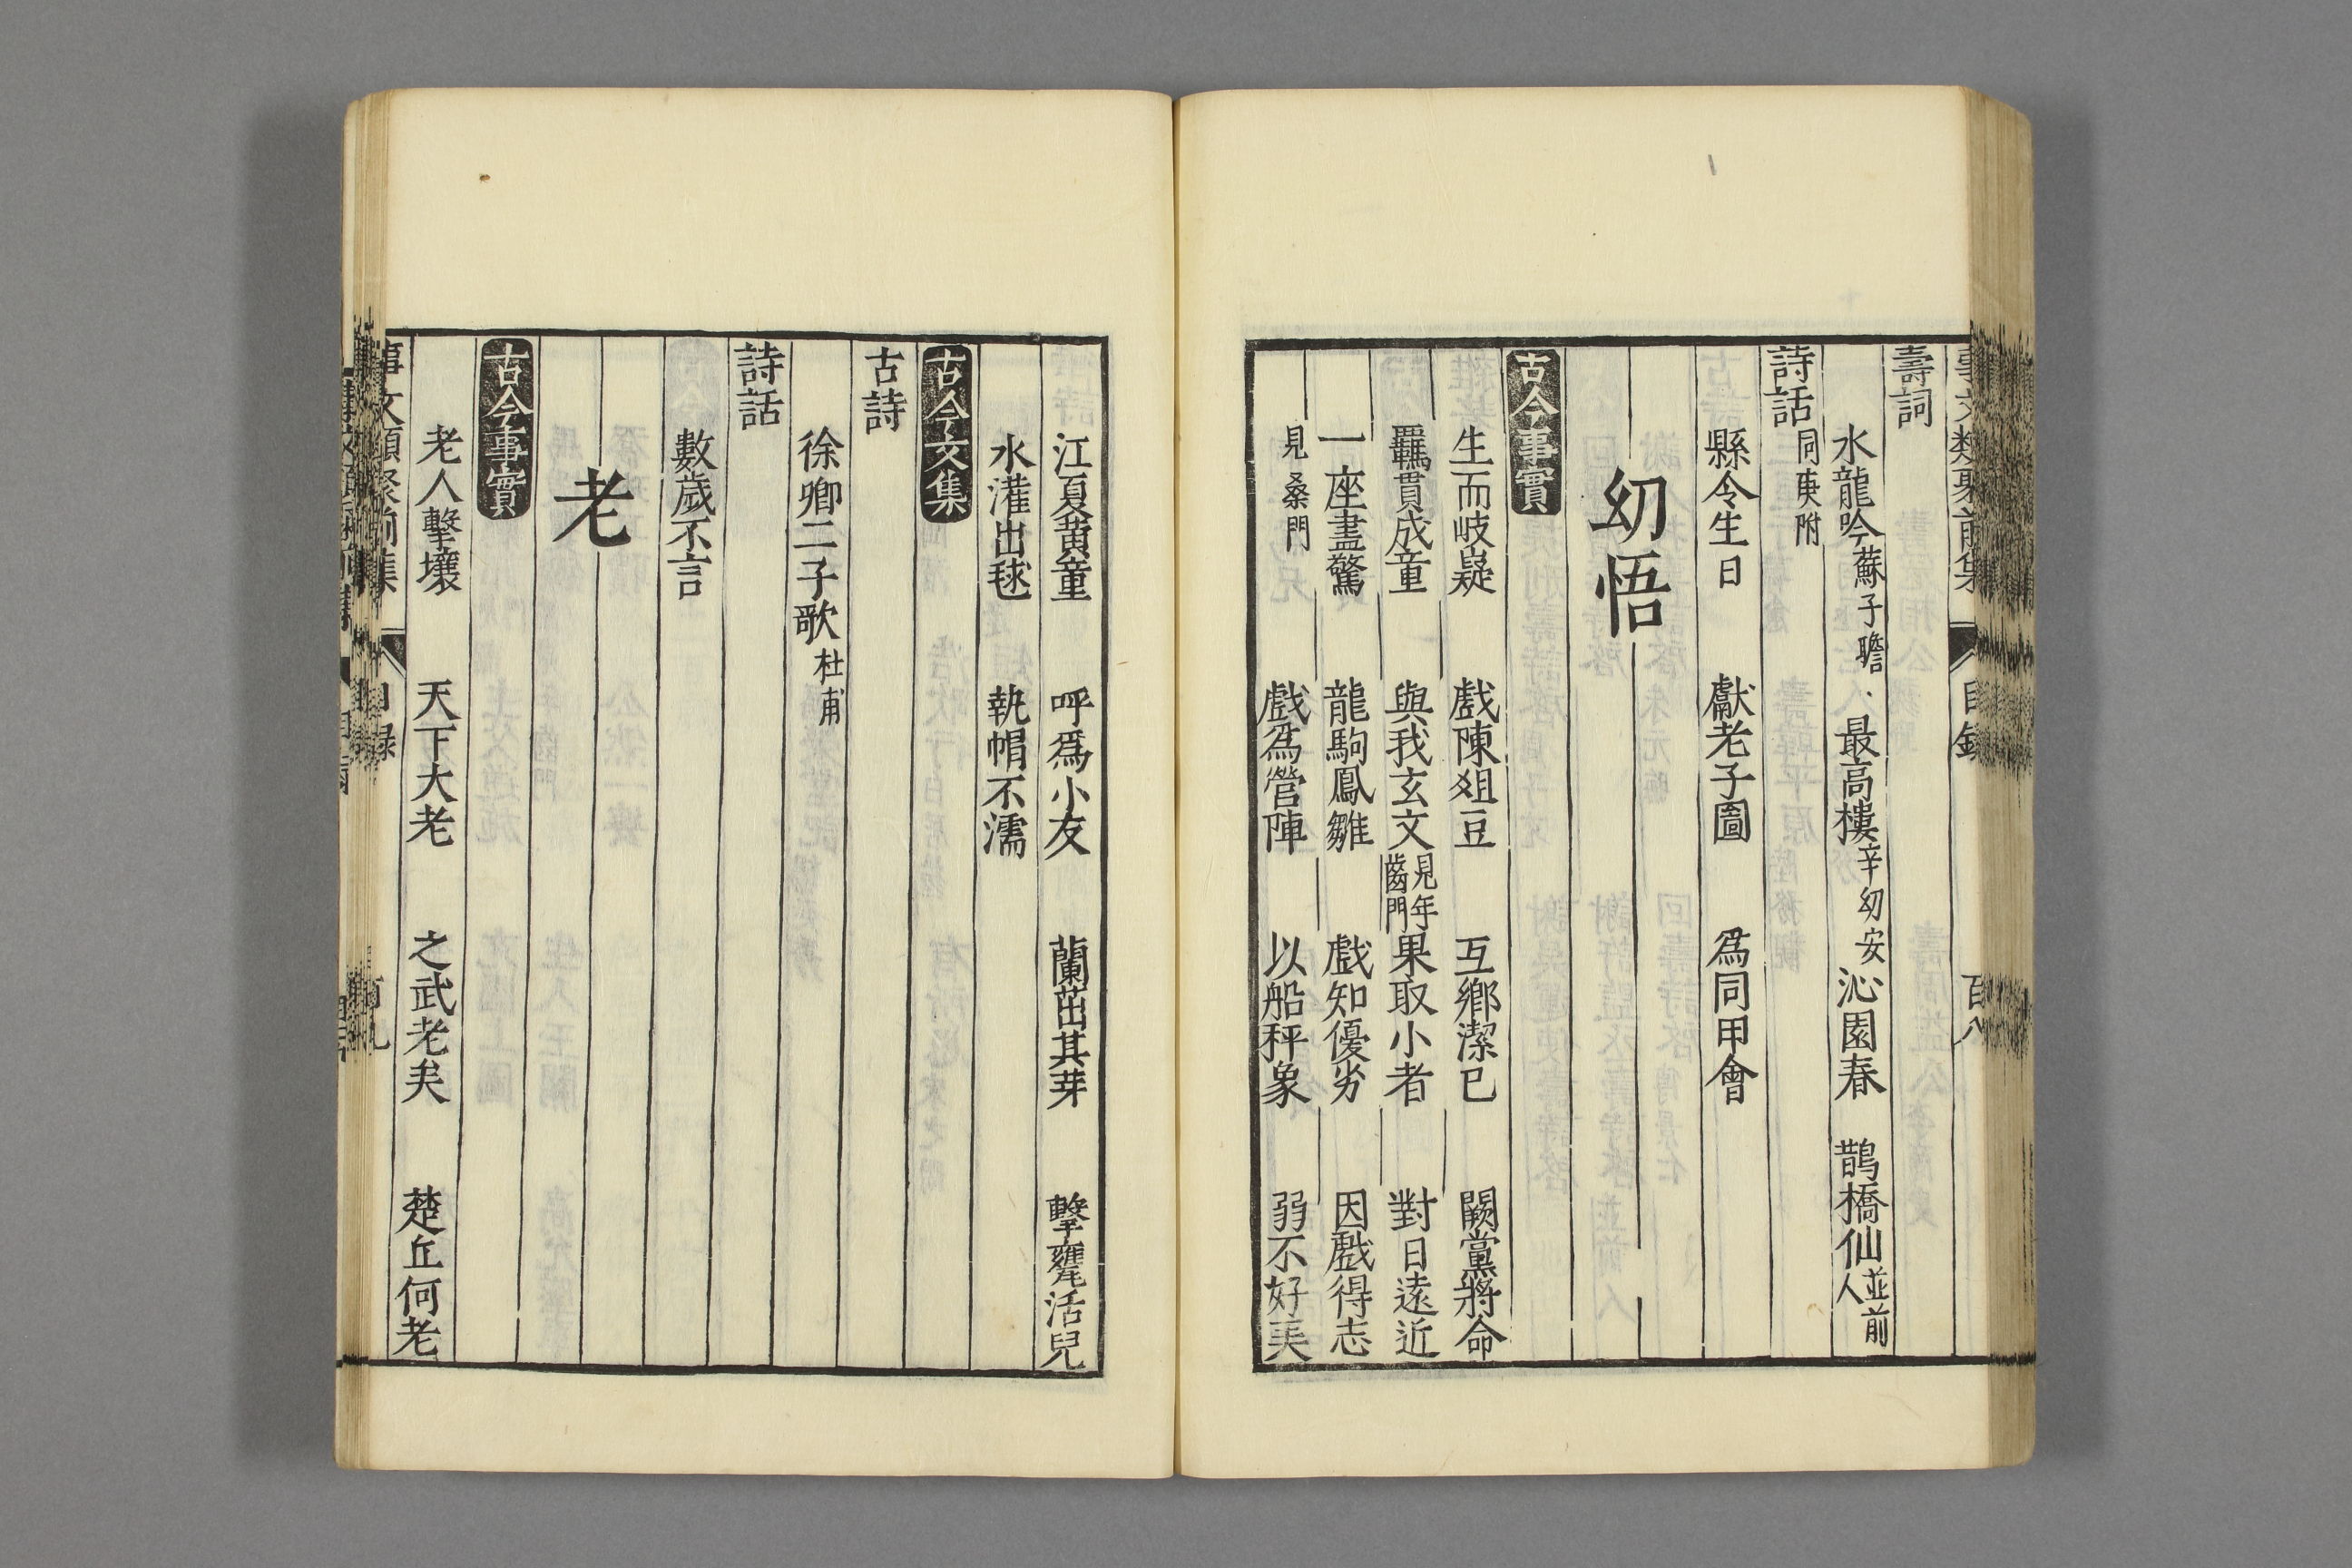 事文類聚前集 目錄 百八
壽詞
水龍吟蘇子瞻 最高樓辛幼安 沁園春 鵲橋仙並前人
詩話同庚附
縣令生日 獻老子圖 爲同甲會
幼悟
古今事實
生而岐嶷 戲陳俎豆 互鄉潔已 闕黨將命
羈貫成童 與我玄文見年齒門 果取小者 對日遠近
一座盡驚 龍駒鳳雛 戲知優劣 因戲得志
見桑門 戲爲營陣 以船秤象 弱不好美
江夏黃童 呼爲小友 蘭茁其芽 擊甕活兒
水灌出毬 執帽不濡
古今文集
古詩
徐卿二子歌杜甫
詩話
數歲不言
老
古今事實
老人擊壤 天下大老 之武老矣 楚丘何老
事文類聚前集 目錄 百九